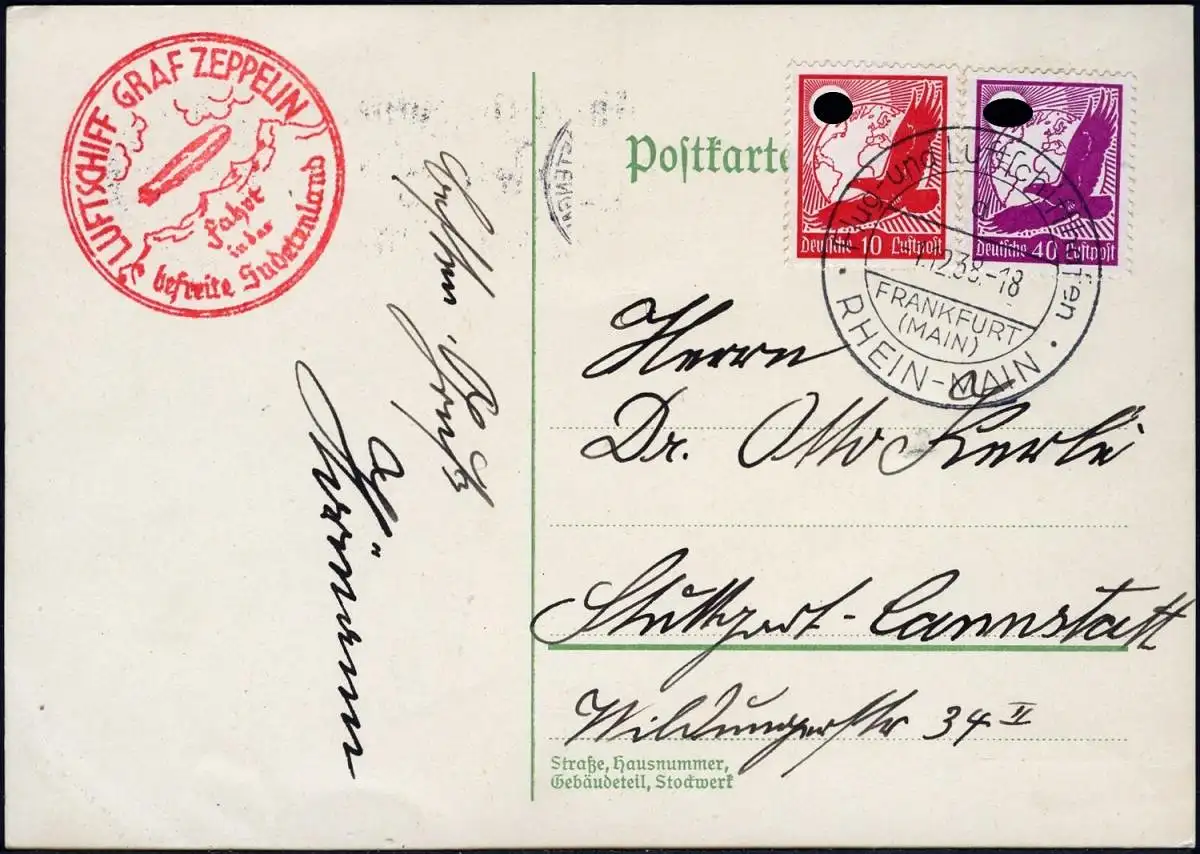 LUFTSCHIFF GRAF ZEPPELIN
Fahrt
in das
befreite Sudetenland
Postkarte
Deutsche 10 Luftpost
Deutsche 40 Luftpost
Flug- und Luftschiffhafen
1.12.38.-18
FRANKFURT
(MAIN)
RHEIN-MAIN
Herrn
Dr. Otto Kerle
Stuttgart-Cannstatt
Wildungerstr 34 II
Straße, Hausnummer,
Gebäudeteil, Stockwerk